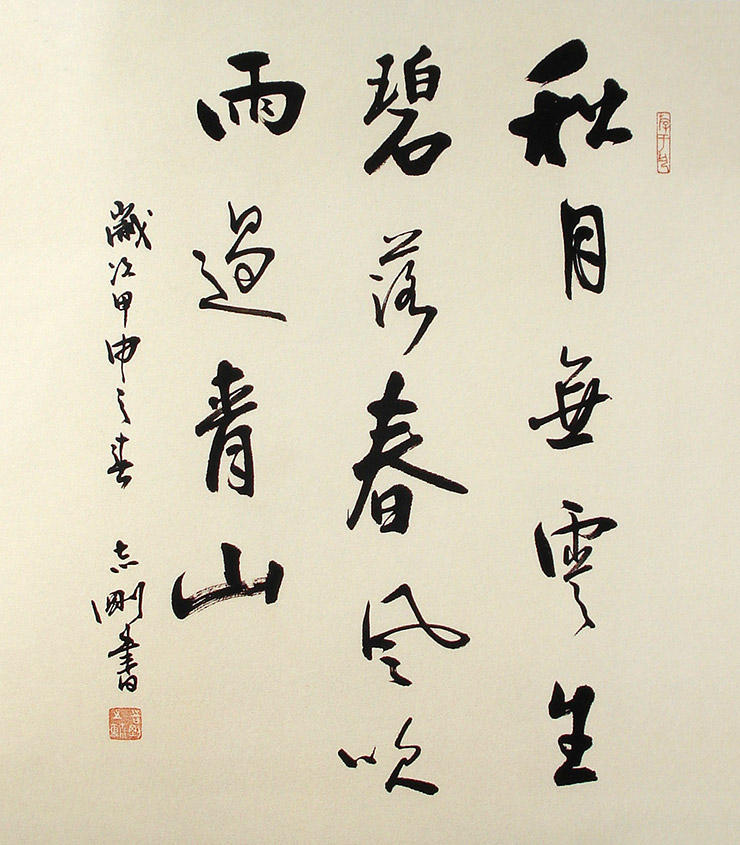 秋月無雲生
碧落春風吹
雨過青山
歲次甲申之春
志剛書